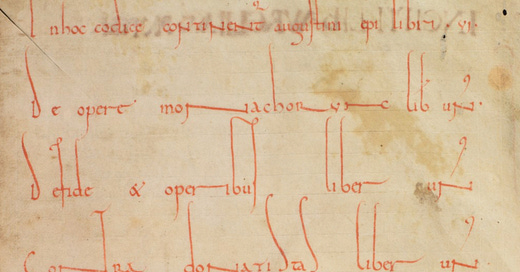 Inhoc codice continent augustini epi libri · vi ·
De opere monachorum lib un'·
Defide & operibus liber un'
Contra donatistas liber un'